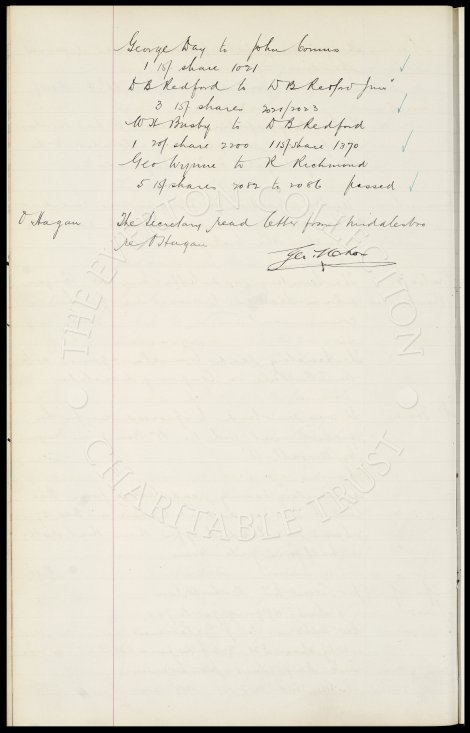 George Day to John
1 15/ share 1021
D B Redford to D B Redford Junr
3 15/ shares 2020/2023
W H Busby to D B Redford
1 20/ share 2200 1 15/ share 1370
Geo Wynne to R Richmond
5 15/ shares 2082 to 2086 passed
O'Hagan The Secretary read letter from Middlesbro
re O'Hagan
Geo. Mahon
THE EVERTON COLLECTION
CHARITABLE TRUST